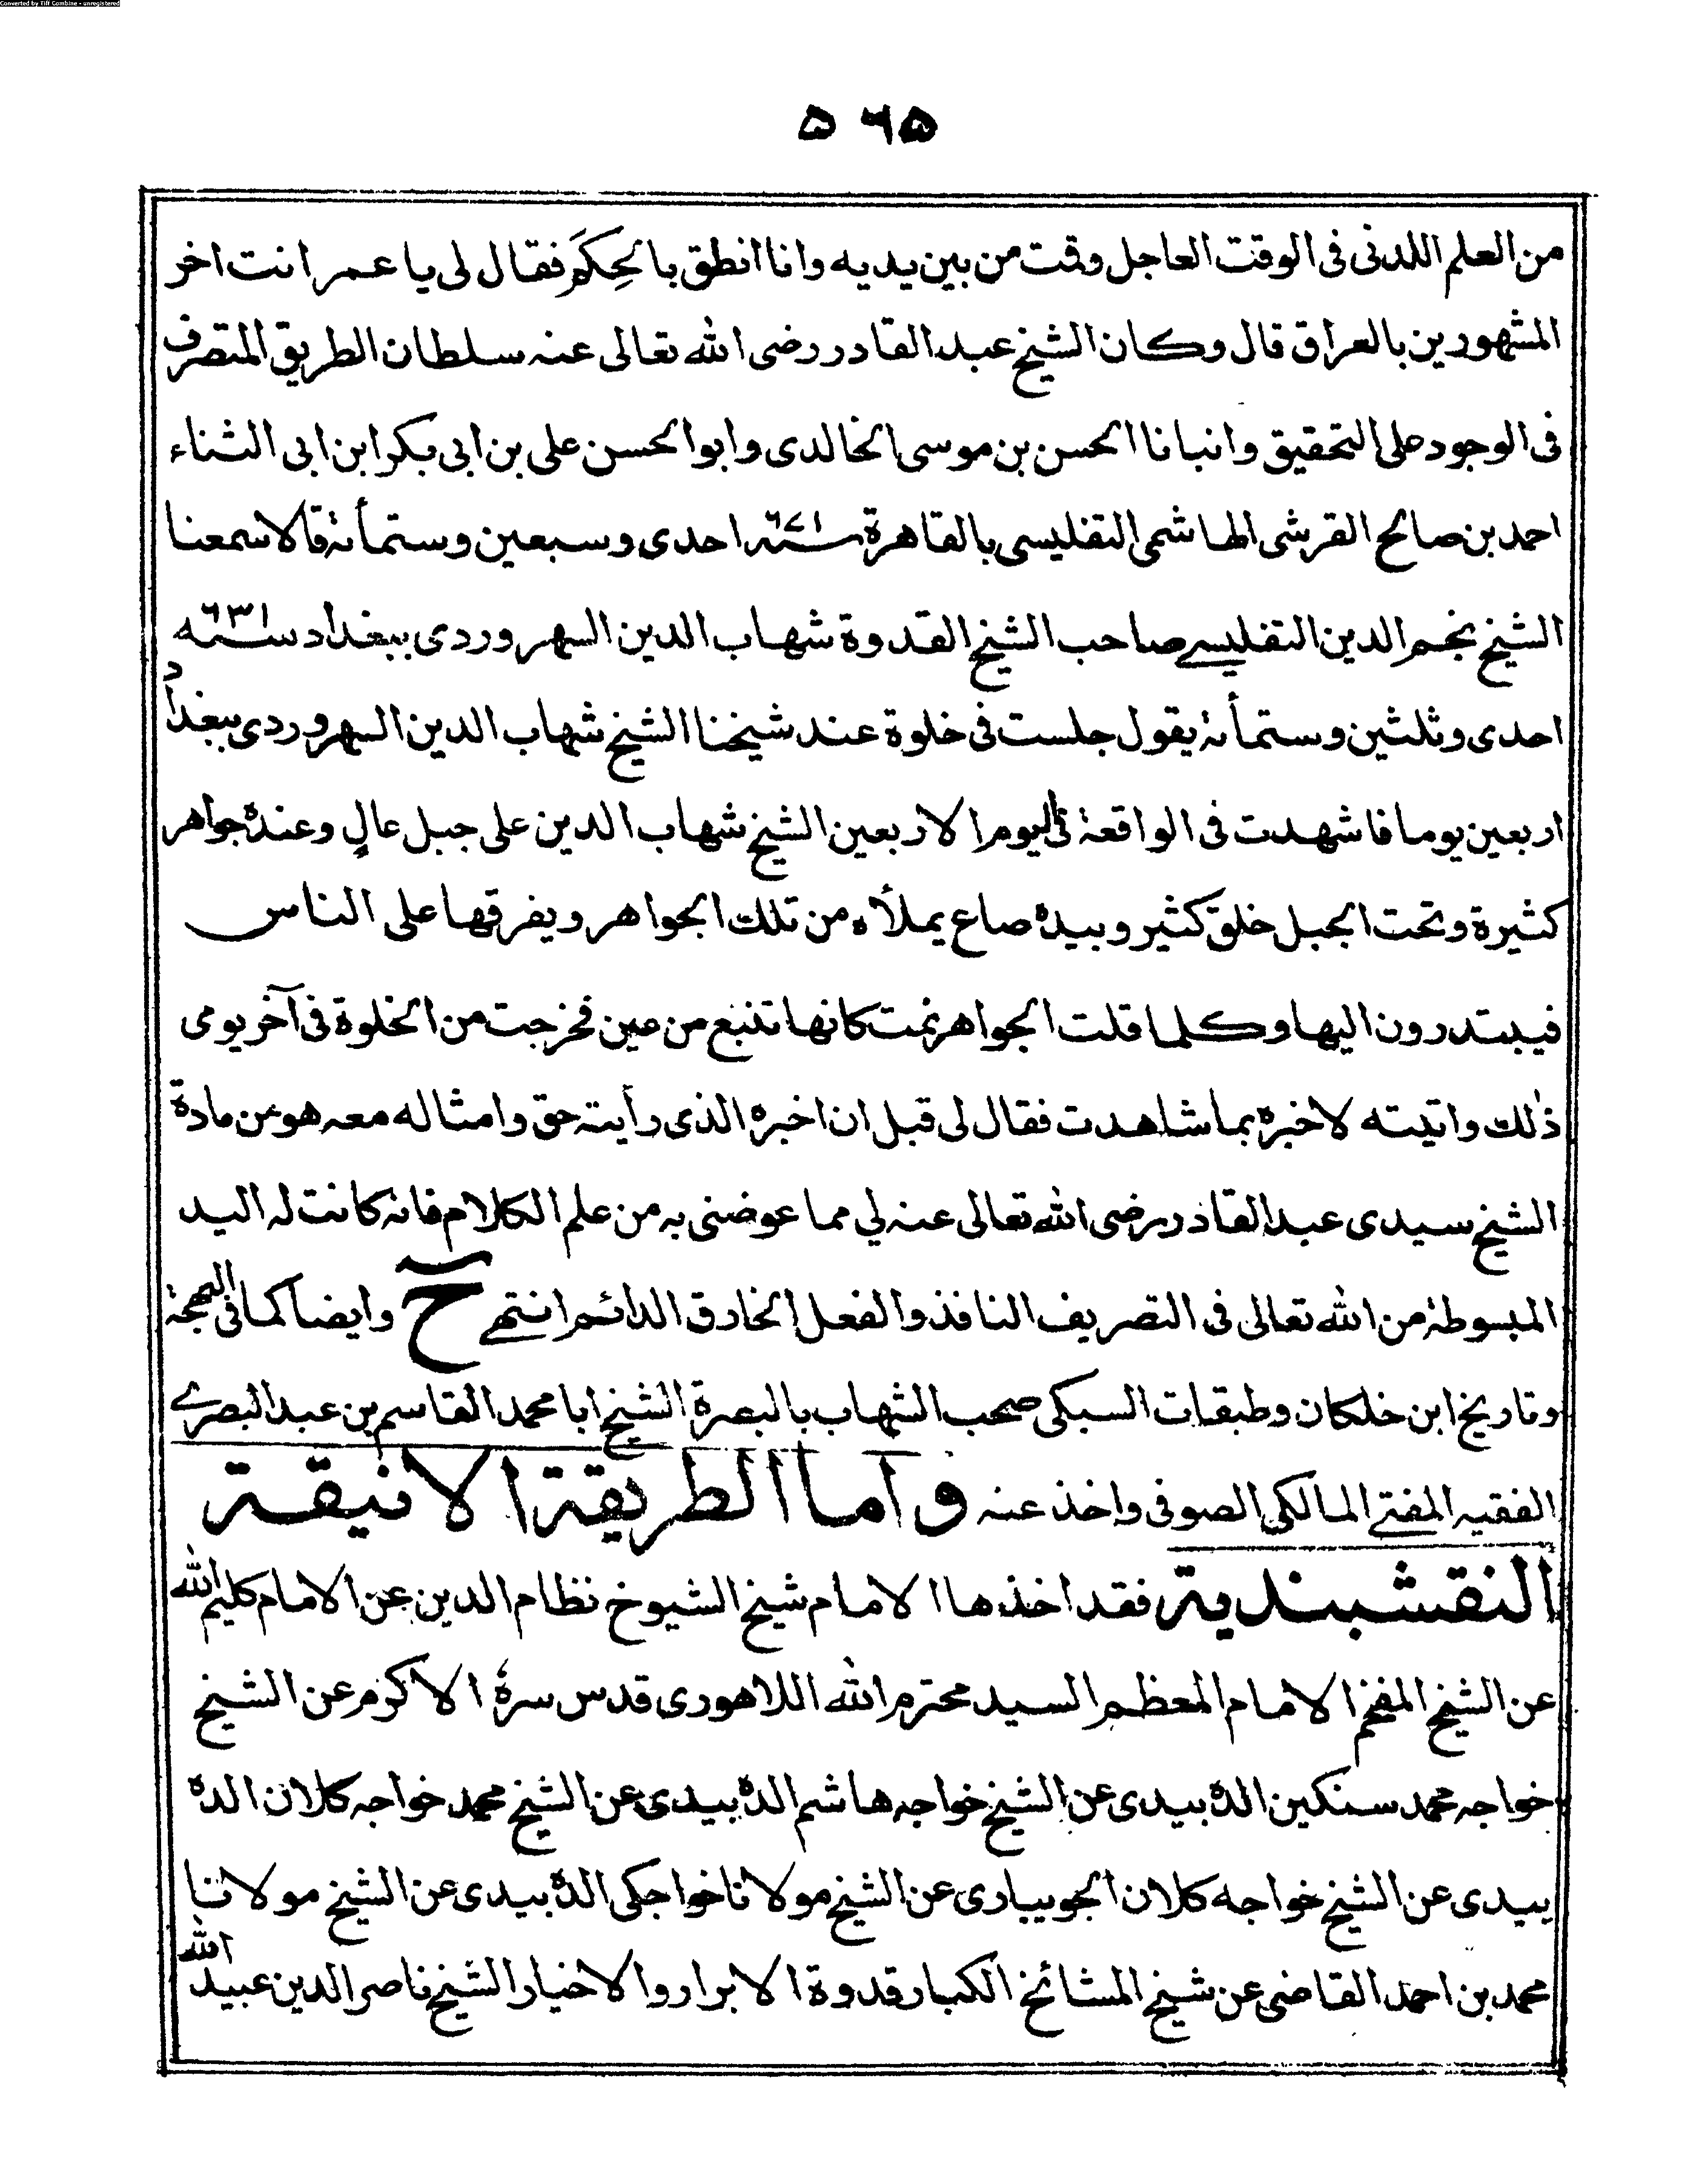 Converted by Tiff Combine - unregistered
۵۶۵
من العلم اللدنى فى الوقت العاجل وقمت من بين يديه وانا انطق بالحِكَمِ فقال لى يا عمر انت اخر
المشهورين بالعراق قال وكان الشيخ عبد القادر رضى الله تعالى عنه سلطان الطريق المتصرف
فى الوجود على التحقيق وانبانا الحسن بن موسى الخالدى وابوا الحسن على بن ابى بكر ابن ابى الثناء
احمد بن صالح القرشى الهاشمى التفليسى بالقاهرة سنه ۶۷۱ احدى وسبعين وستمأئة قالا سمعنا
الشيخ نجم الدين التفليسے صاحب الشيخ القدوة شهاب الدين السهروردى ببغداد سنه ۶۳۱
احدى وثلثين وستمأئة يقول جلست فى خلوة عند شيخنا الشيخ شهاب الدين السهروردى ببغداد
اربعين يوما فاشهدت فى الواقعة فى اليوم الاربعين الشيخ شهاب الدين على جبل عالٍ وعنده جواهر
كثيرة وتحت الجبل خلق كثير وبيده صاع يملأه من تلك الجواهر ويفرقها على الناس
فيبتدرون اليها وكلما قلت الجواهر نمت كانها تنبع من عين فخرجت من الخلوة فى آخر يومى
ذٰلك واتيته لاخبره بما شاهدت فقال لى قبل ان اخبره الذى رأيته حق وامثاله معه هو من مادة
الشيخ سيدى عبد القادر رضى الله تعالى عنه لي مما عوضنى به من علم الكلام فانه كانت له اليد
المبسوطة من الله تعالى فى التصريف النافذ والفعل الخارق الدائم انتهے ح وايضا كما فى البهجة
وتاريخ ابن خلكان وطبقات السبكى صحب الشهاب بالبصرة الشيخ ابا محمد القاسم بن عبد البصرے
الفقيه المفتے المالكى الصوفى واخذ عنه وآما الطريقة الانيقة
النقشبندية فقد اخذها الامام شيخ الشيوخ نظام الدين عن الامام كليم الله
عن الشيخ المفخم الامام المعظم السيد محترم الله اللاهورى قدس سرهٗ الاكرم عن الشيخ
خواجه محمد سنكين الده بيدى عن الشيخ خواجه هاشم الده بيدى عن الشيخ محمد خواجه كلان الده
بيدى عن الشيخ خواجه كلان الجويبارى عن الشيخ مولانا خواجكى الده بيدى عن الشيخ مولانا
محمد بن احمد القاضى عن شيخ المشائخ الكبار قدوة الابرار والاخيار الشيخ ناصر الدين عبيد الله